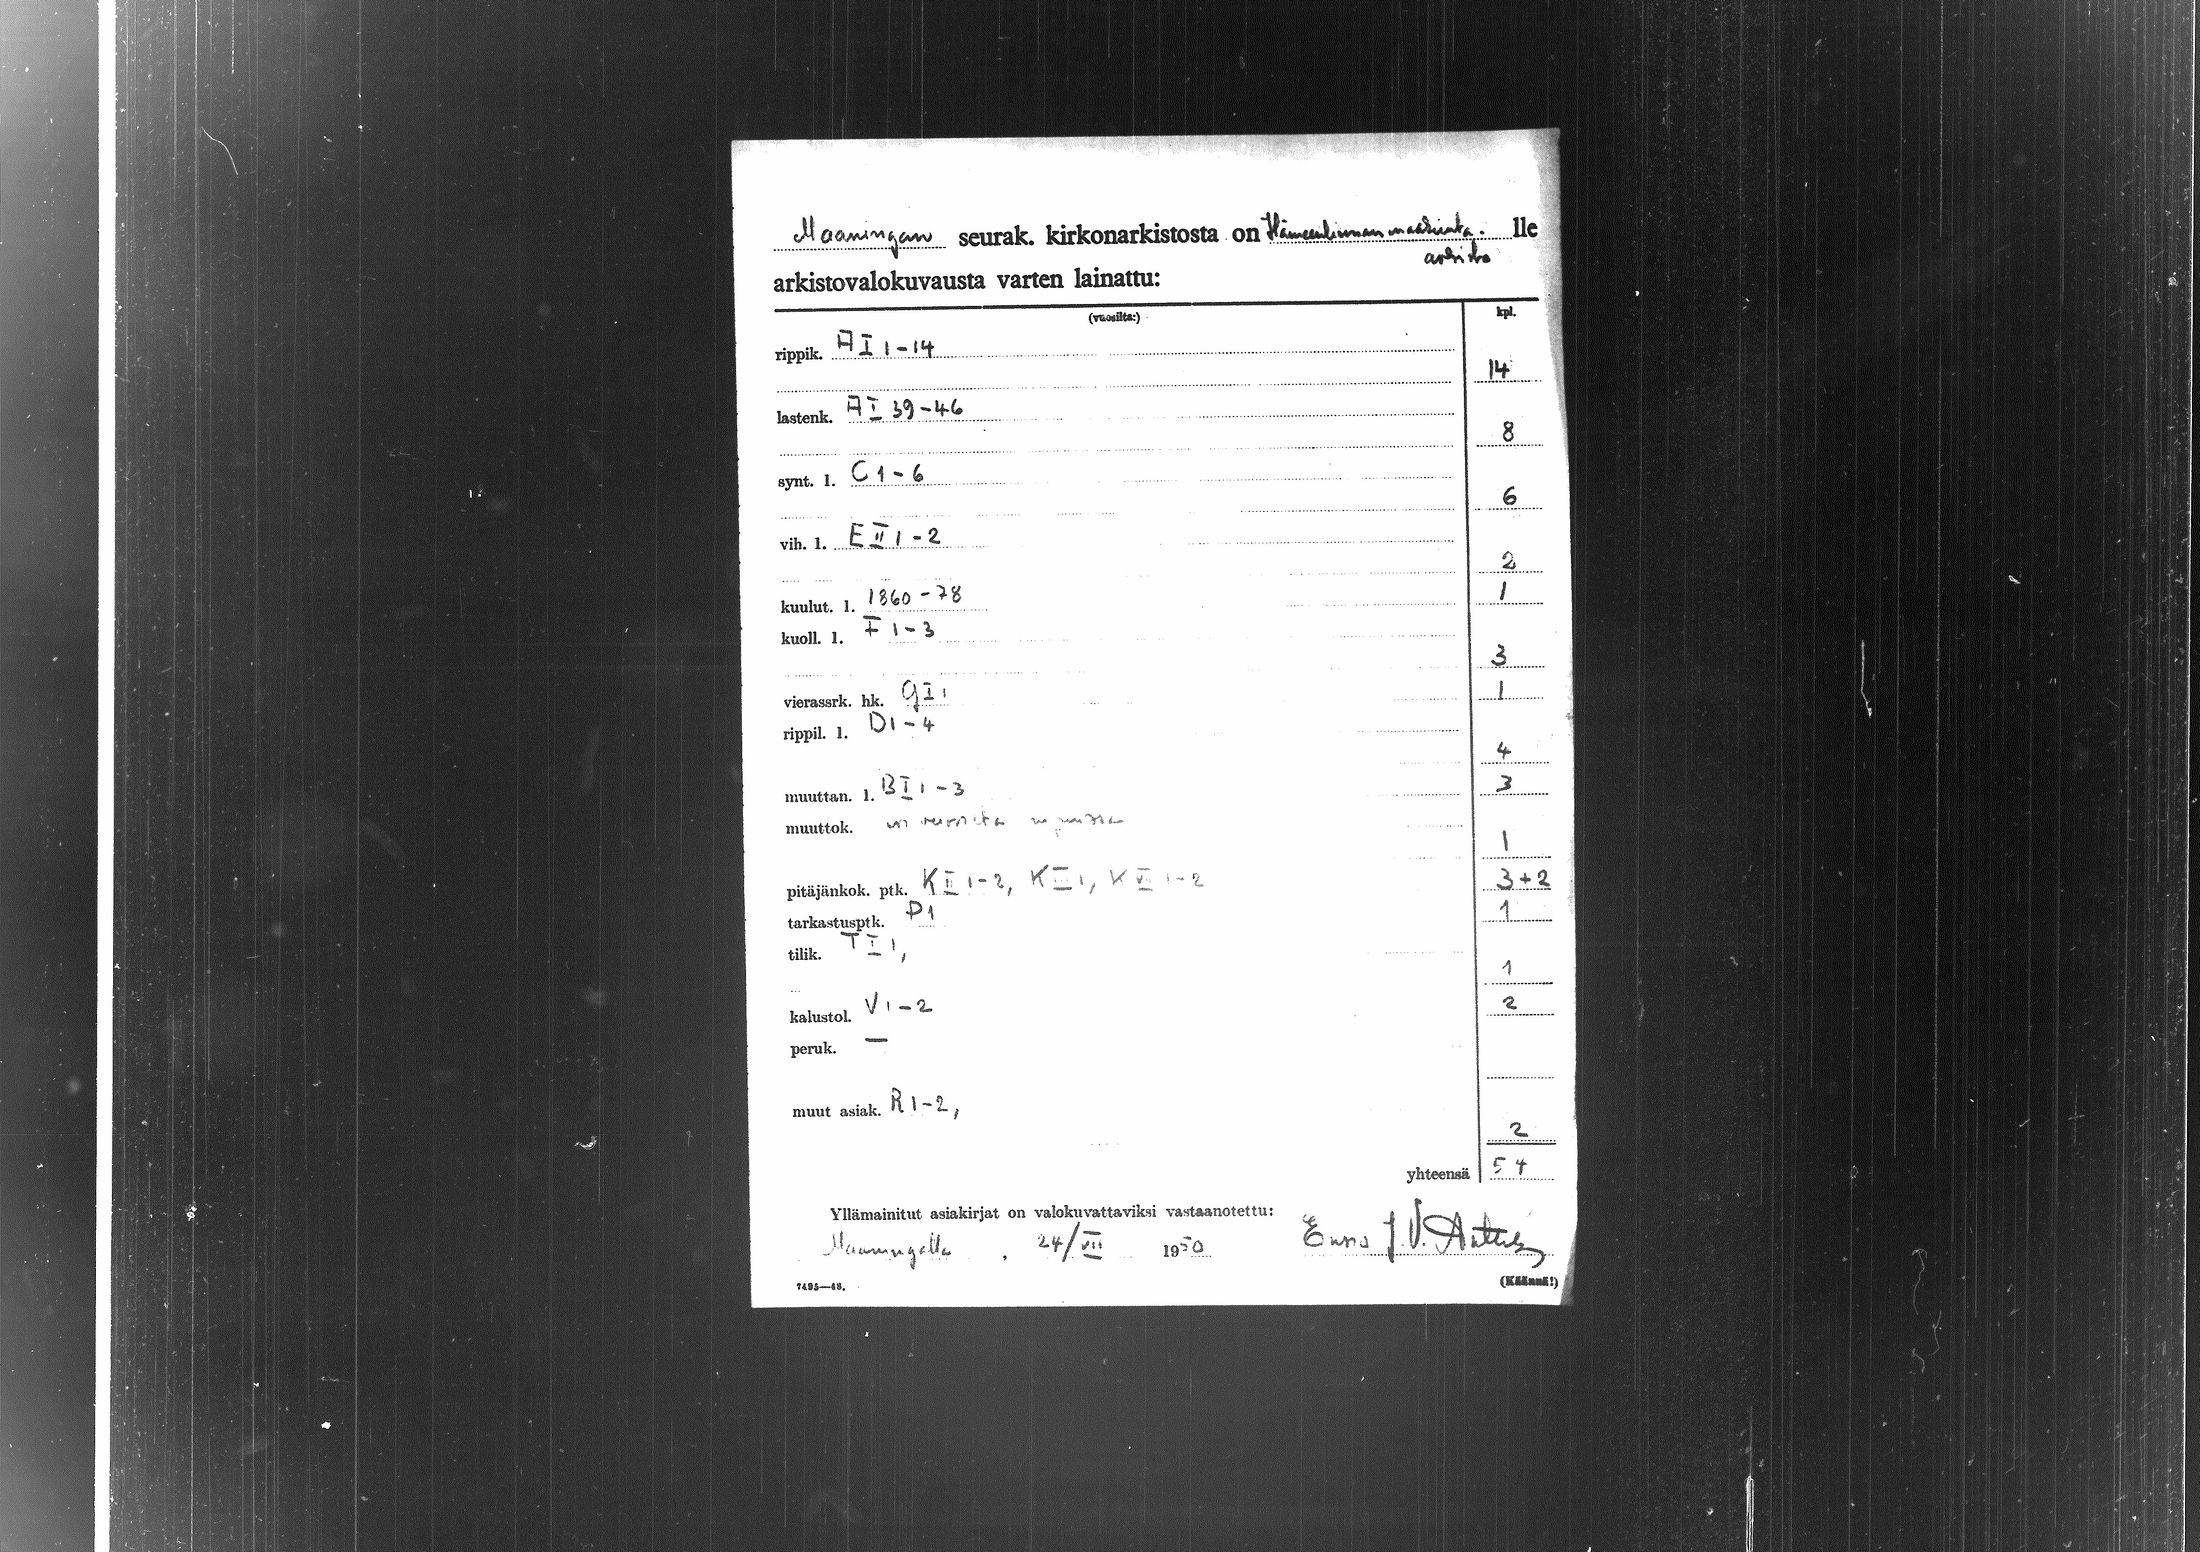 Maaningan seurak. kirkonarkistosta on Hämeenlinnan maakunta- lle
arkisto
arkistovalokuvausta varten lainattu:
(vuosilta:) kpl.
rippik. A I 1-14
14
lastenk. A I 39-46
8
synt. l. C 1-6
6
vih. l. E II 1-2
2
kuulut. l. 1860-78 1
kuoll. l. F 1-3
3
vierassrk. hk. G I 1 1
rippil. l. D 1-4
4
muuttan. l. B I 1-3 3
muuttok.
1
pitäjänkok. ptk. K II 1-2, K III 1, K VI 1-2 3+2
tarkastusptk. P 1 1
tilik. T I 1,
1
kalustol. V 1-2 2
peruk. —
muut asiak. R 1-2,
2
yhteensä 54
Yllämainitut asiakirjat on valokuvattaviksi vastaanotettu:
Maaningalla, 24/VII 1950 J.V.
7495—48. (Käännä!)